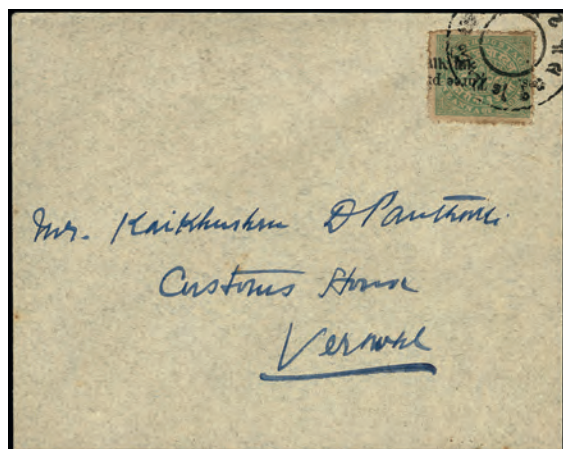 Three p
Mr. Kaikhushru D Panthaki
Customs House
Verawal